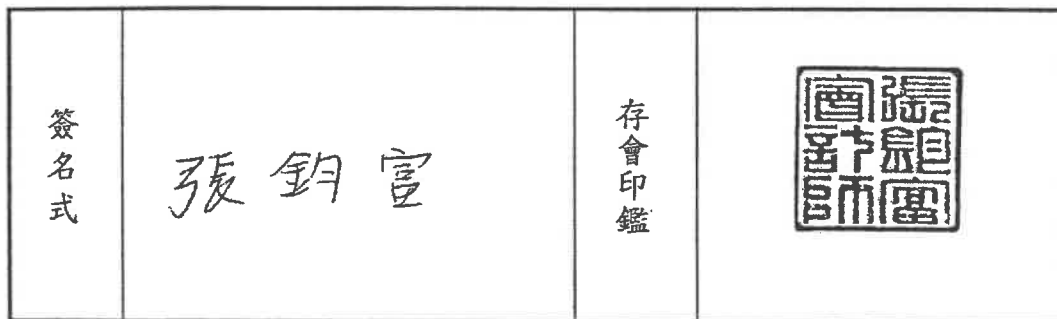 簽名式
張鈞富
存會印鑑
張鈞富
會計師